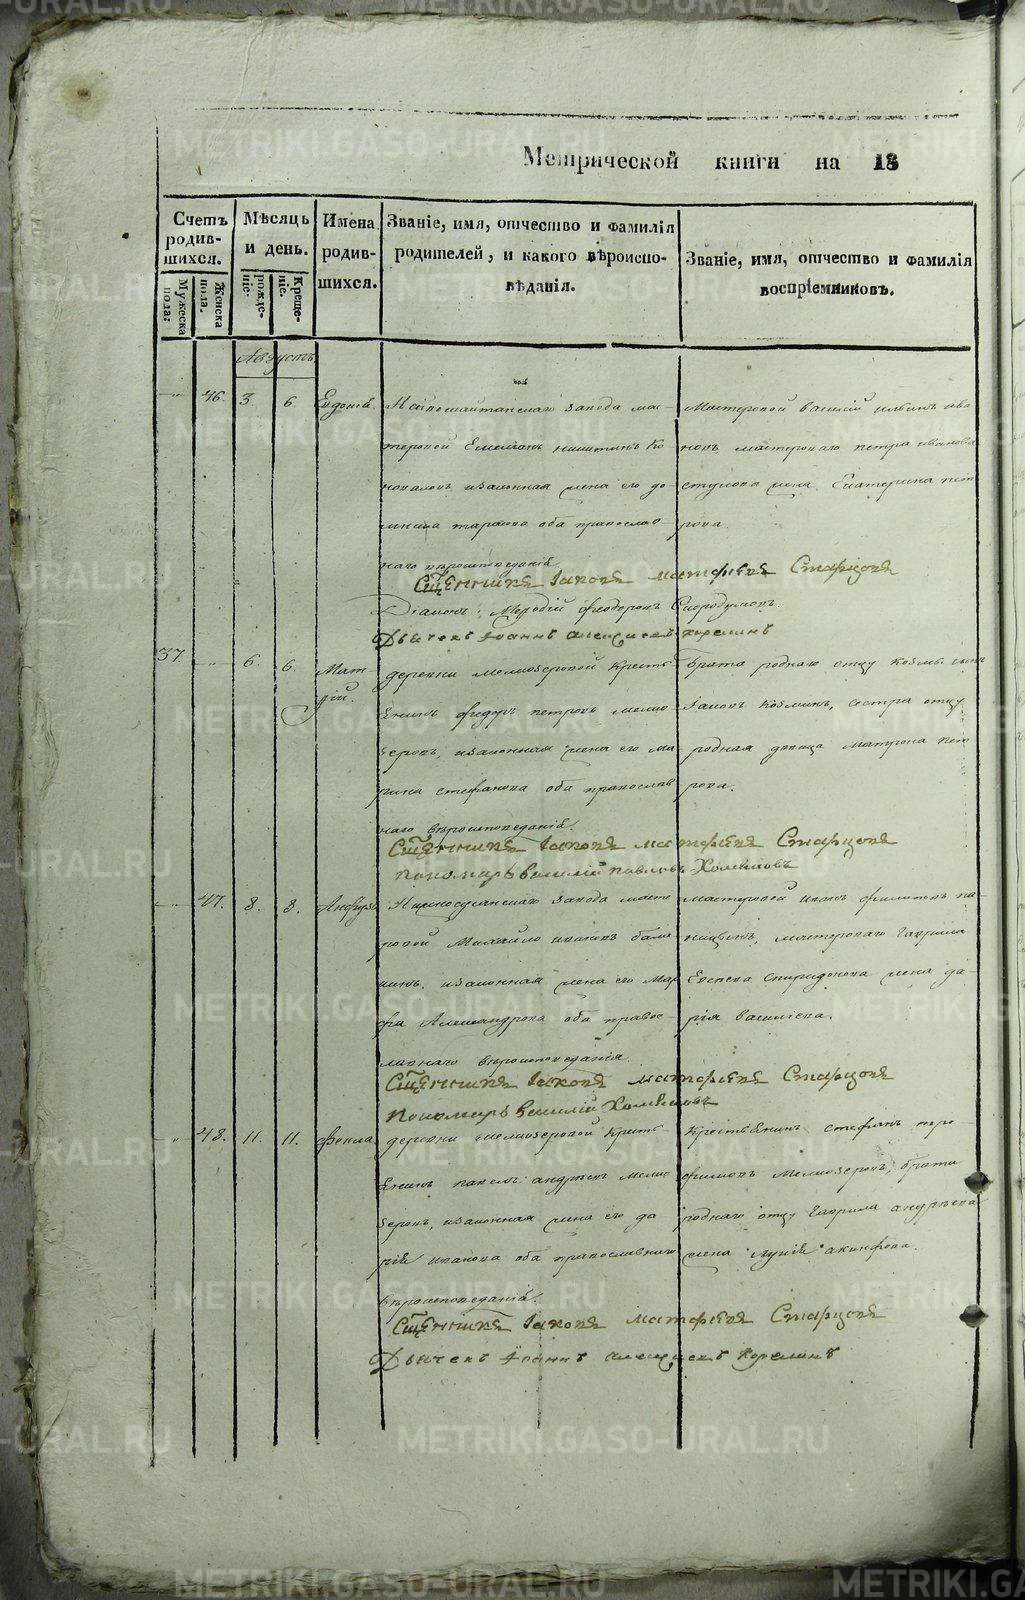 Метрической книги на 18
Счетъ родив- шихся.
Мужеска пола.
Женска пола.
Мѣсяцъ и день.
рожде- ніе.
Креще- ніе.
Имена родив- шихся.
Званіе, имя, отчество и фамилія родителей, и какого вѣроиспо- вѣданія.
Званіе, имя, отчество и фамилія воспріемниковъ.
Августъ
" 46. 3. 6. Евдокія
завода мас-
теровой Емельянъ никитинъ Ко
новаловъ, изаконная жена его до-
тарасова оба православ
наго вѣроисповеданія
Мастеровой василій ильинъ ива
новъ, мастероваго петра иванова
жена Екатерина пет
рова
Священникъ Іаковъ матфѣевъ Старцовъ
Діаконъ Меѳодій Ѳеодоровъ Скородумовъ.
Дьячекъ Іоаннъ алексѣевъ
37. " 6. 6. Мат
ѳій.
деревни мелкозеровой Кресть
Енинъ Ѳедоръ петровъ мелко
зеровъ, изаконная жена его ма
рина стефанова оба православ
наго вѣроисповеданія.
брата роднаго отцу козмы сынъ
Іаковъ Козминъ, сестра отцу
родная дѣвица матрона пет
рова.
Священникъ Іаковъ матфѣевъ Старцовъ
пономарь василій павловъ Хомяковъ
" 47. 8. 8. Анфуза
завода масте
ровой Михайло ивановъ бала
кинъ, изаконная жена его Мар
фа Александрова оба правос-
лавнаго вѣроисповеданія
мастеровой иванъ филиповъ
мастероваго гаврила
Евсеева спиридонова жена да-
рія васильева.
Священникъ Іаковъ матфѣевъ Старцовъ
Пономарь василій Хомяковъ
" 48. 11. 11. Фекла
деревни мелкозеровой Кресть-
Енинъ павелъ андрѣевъ мелко
зеровъ, изаконная жена его да
рія иванова оба православнаго
вѣроисповеданія.
Крестьянинъ стефанъ тро-
фимовъ Мелкозеровъ, брата
роднаго отцу гаврила андрѣева
жена лукія акинфова.
Священникъ Іаковъ матфѣевъ Старцовъ
Дьячекъ Іоаннъ алексѣевъ
METRIKI.GASO-URAL.RU